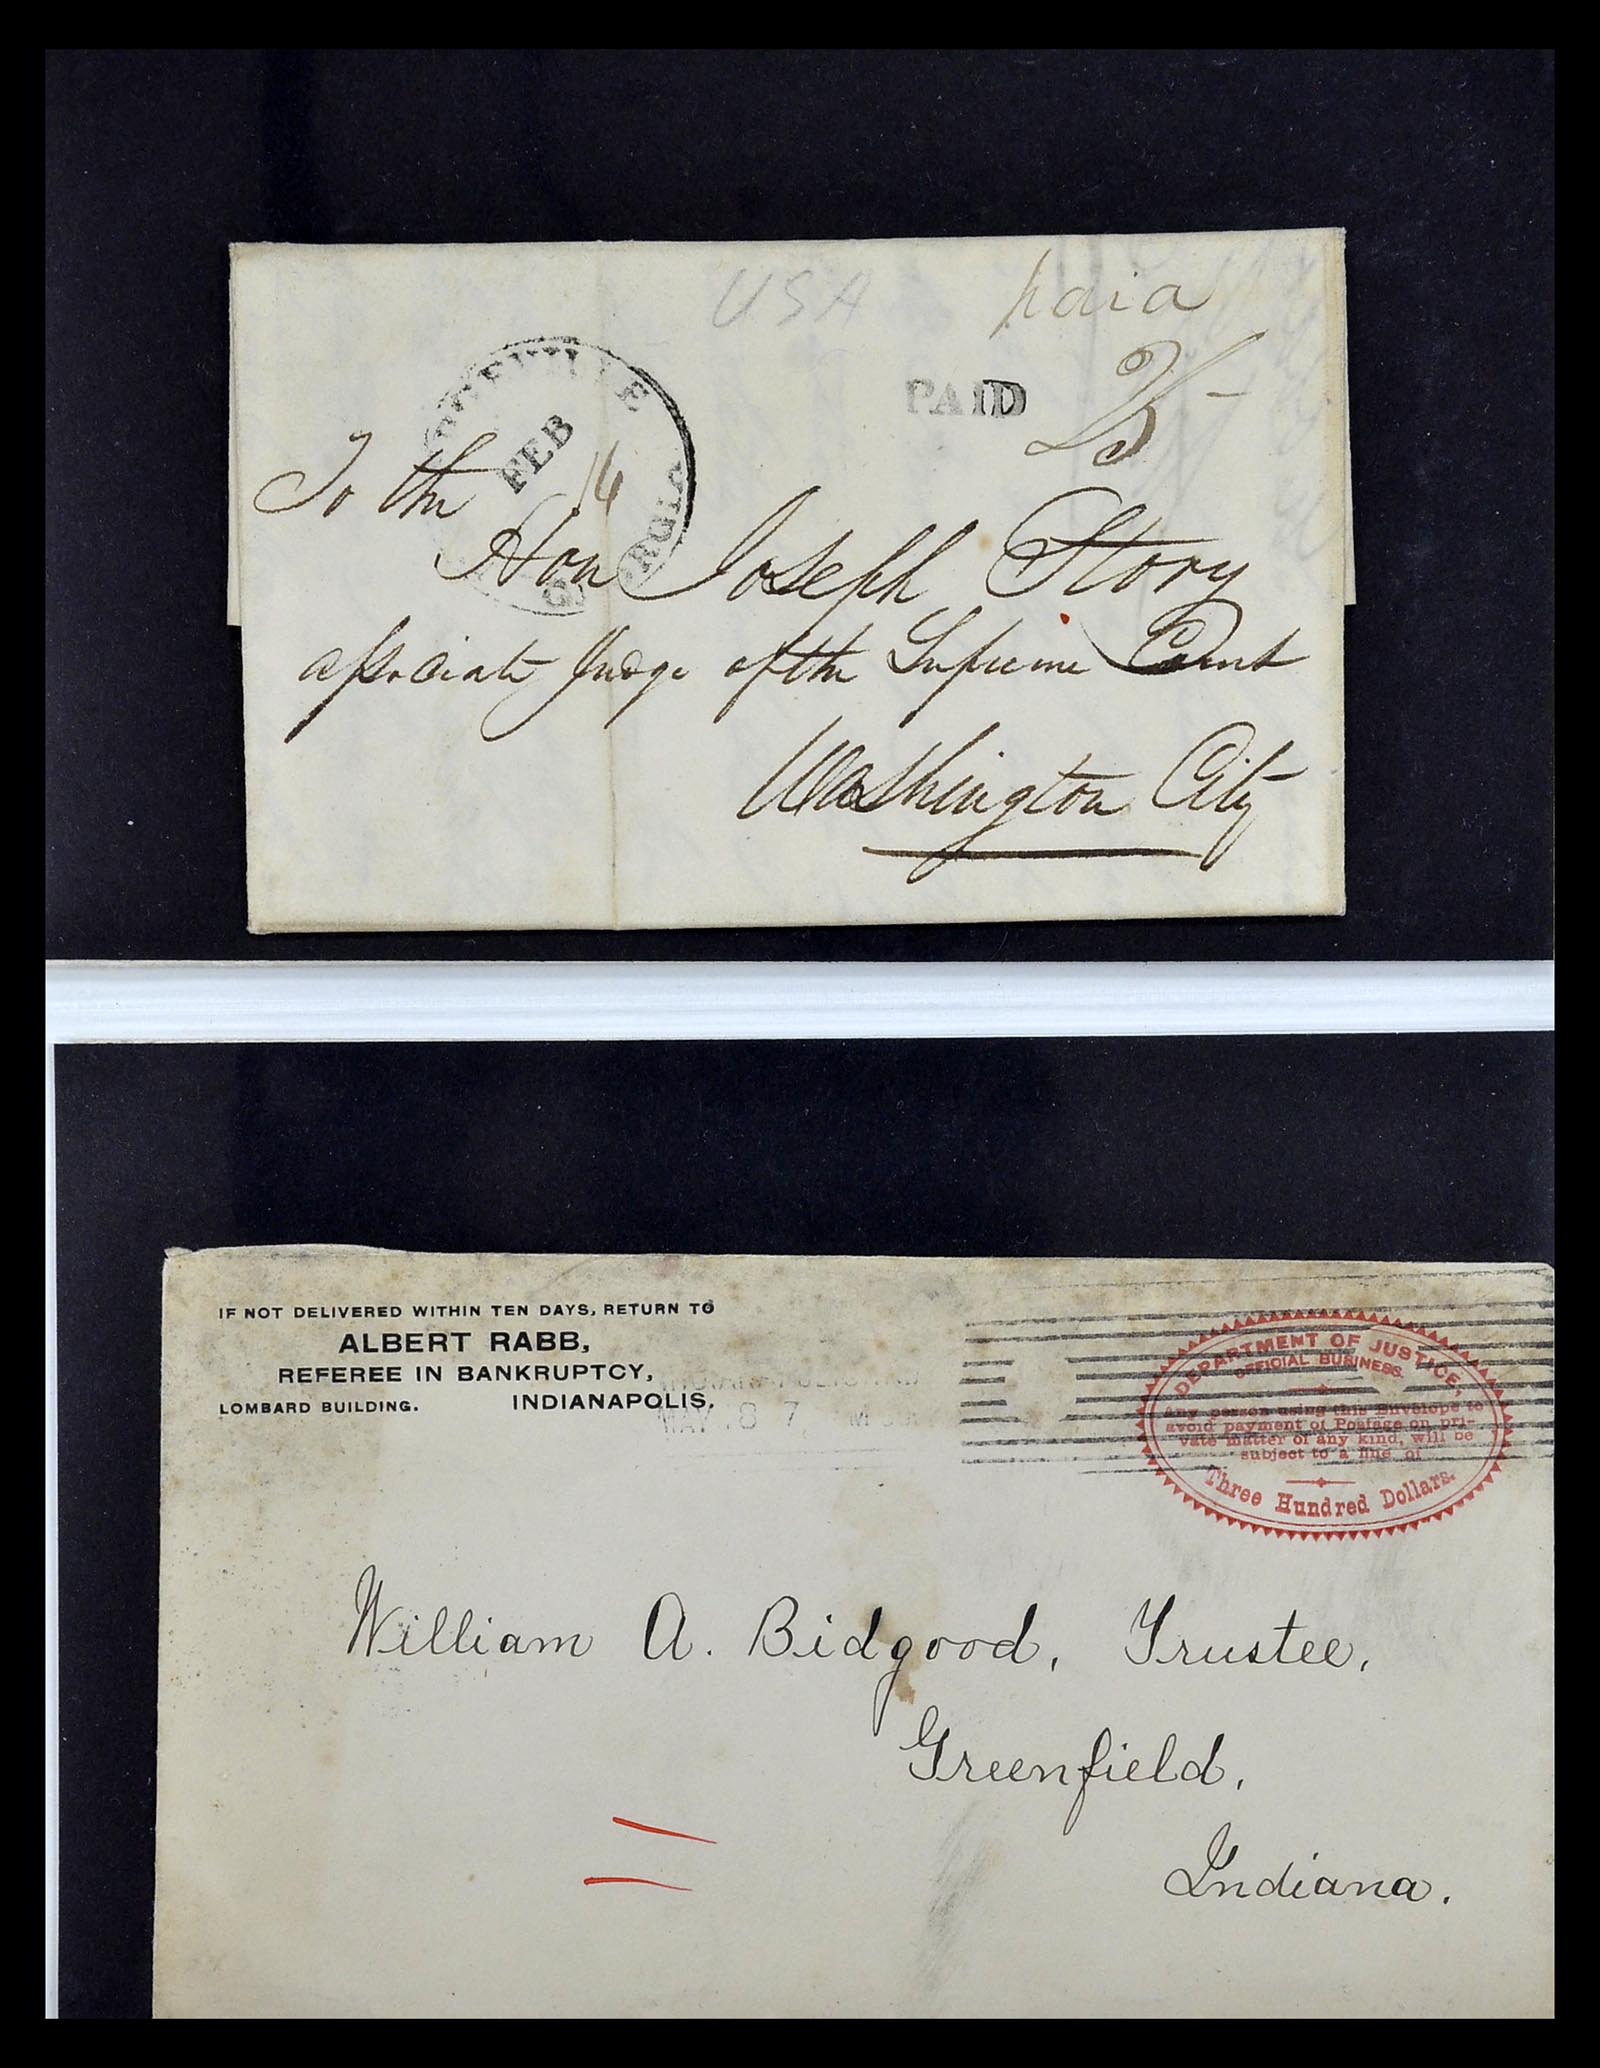 USA
paid
PAID 25
FEB
14
GEORGIA
To the
Hon Joseph Story
associate Judge of the Supreme Court
Washington City
IF NOT DELIVERED WITHIN TEN DAYS, RETURN TO
ALBERT RABB,
REFEREE IN BANKRUPTCY,
LOMBARD BUILDING. INDIANAPOLIS.
MAY 8 7
DEPARTMENT OF JUSTICE,
OFFICIAL BUSINESS.
Any person using this Envelope to
avoid payment of Postage on pri-
vate matter of any kind, will be
subject to a fine of
Three Hundred Dollars.
William A. Bidgood, Trustee,
Greenfield,
Indiana.